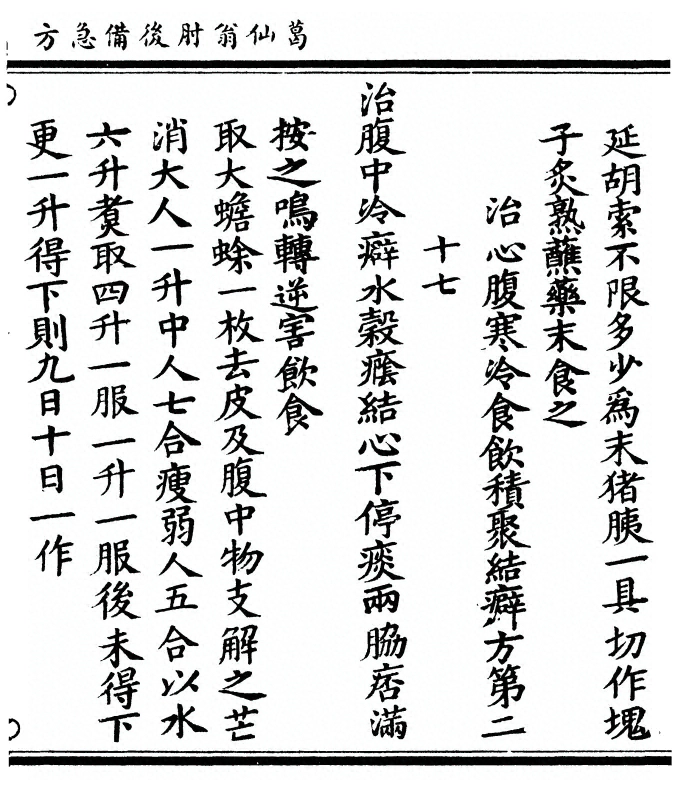 葛仙翁肘後備急方
延胡索不限多少爲末猪胰一具切作塊
子炙熟蘸藥末食之
治心腹寒冷食飲積聚結癖方第二
十七
治腹中冷癖水穀癊結心下停痰兩脇痞滿
按之鳴轉逆害飲食
取大蟾蜍一枚去皮及腹中物支解之芒
消大人一升中人七合瘦弱人五合以水
六升煑取四升一服一升一服後未得下
更一升得下則九日十日一作